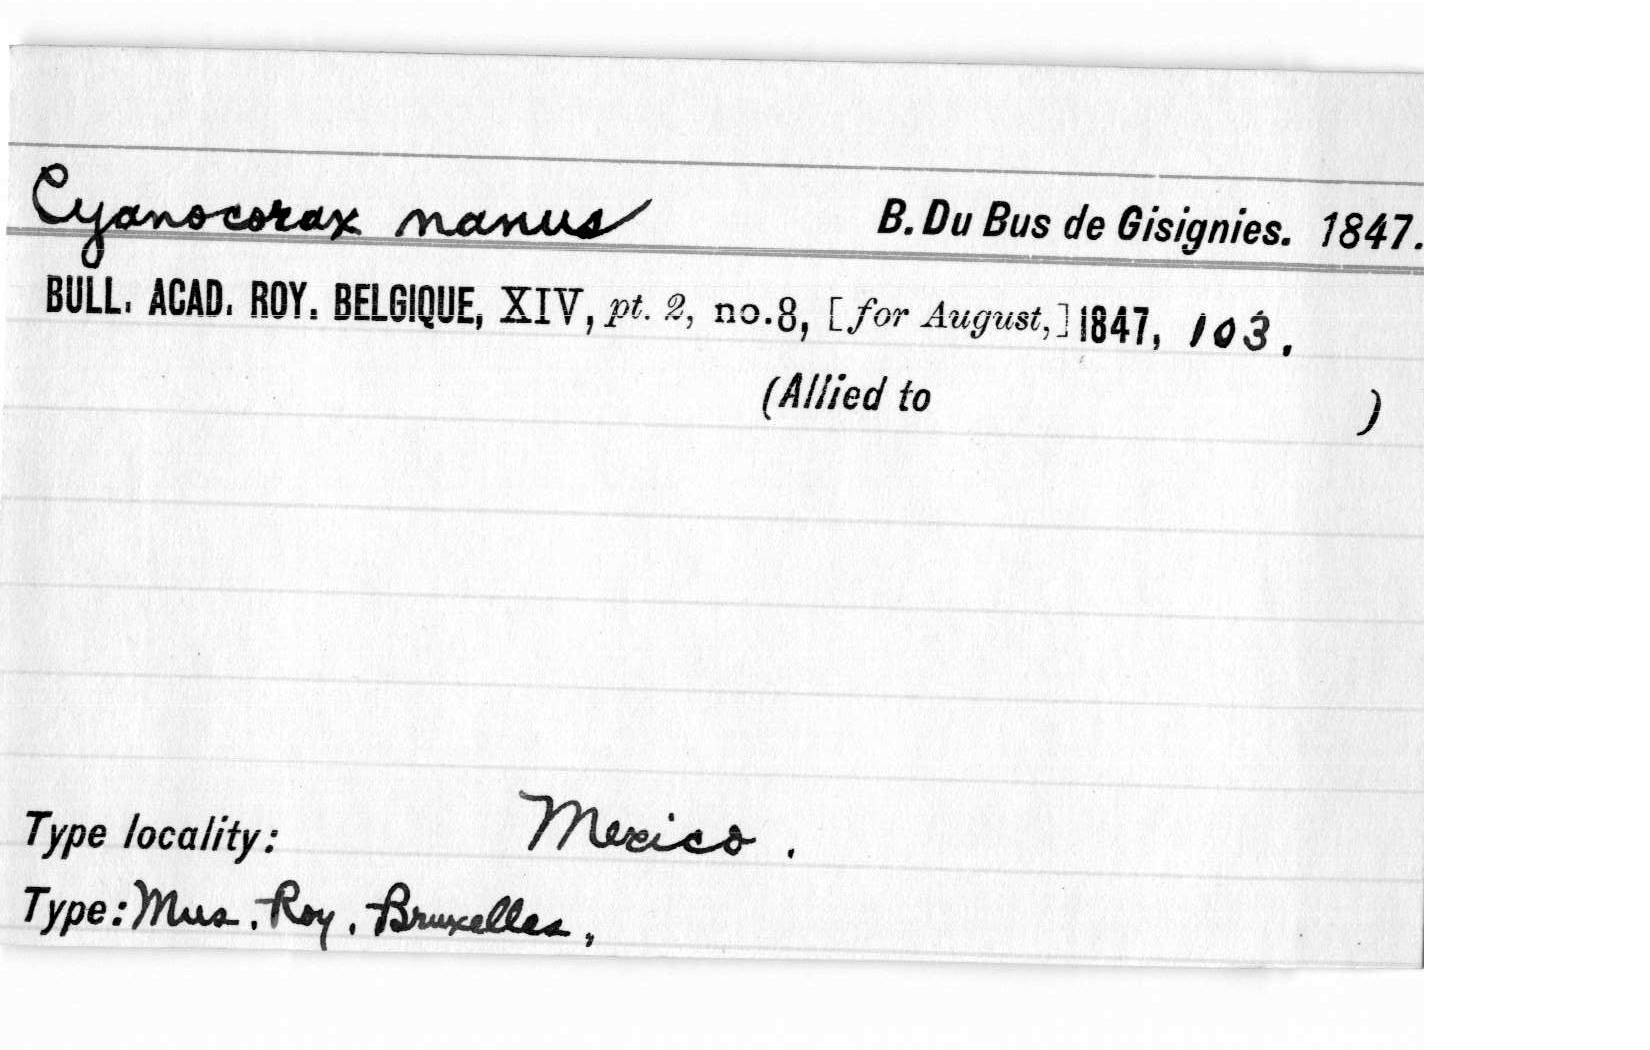 Cyanocorax nanus B. Du Bus de Gisignies. 1847.
BULL. ACAD. ROY. BELGIQUE, XIV, pt. 2, no. 8, [for August,] 1847, 103.
(Allied to )
Type locality: Mexico.
Type: Mus. Roy. Bruxelles,